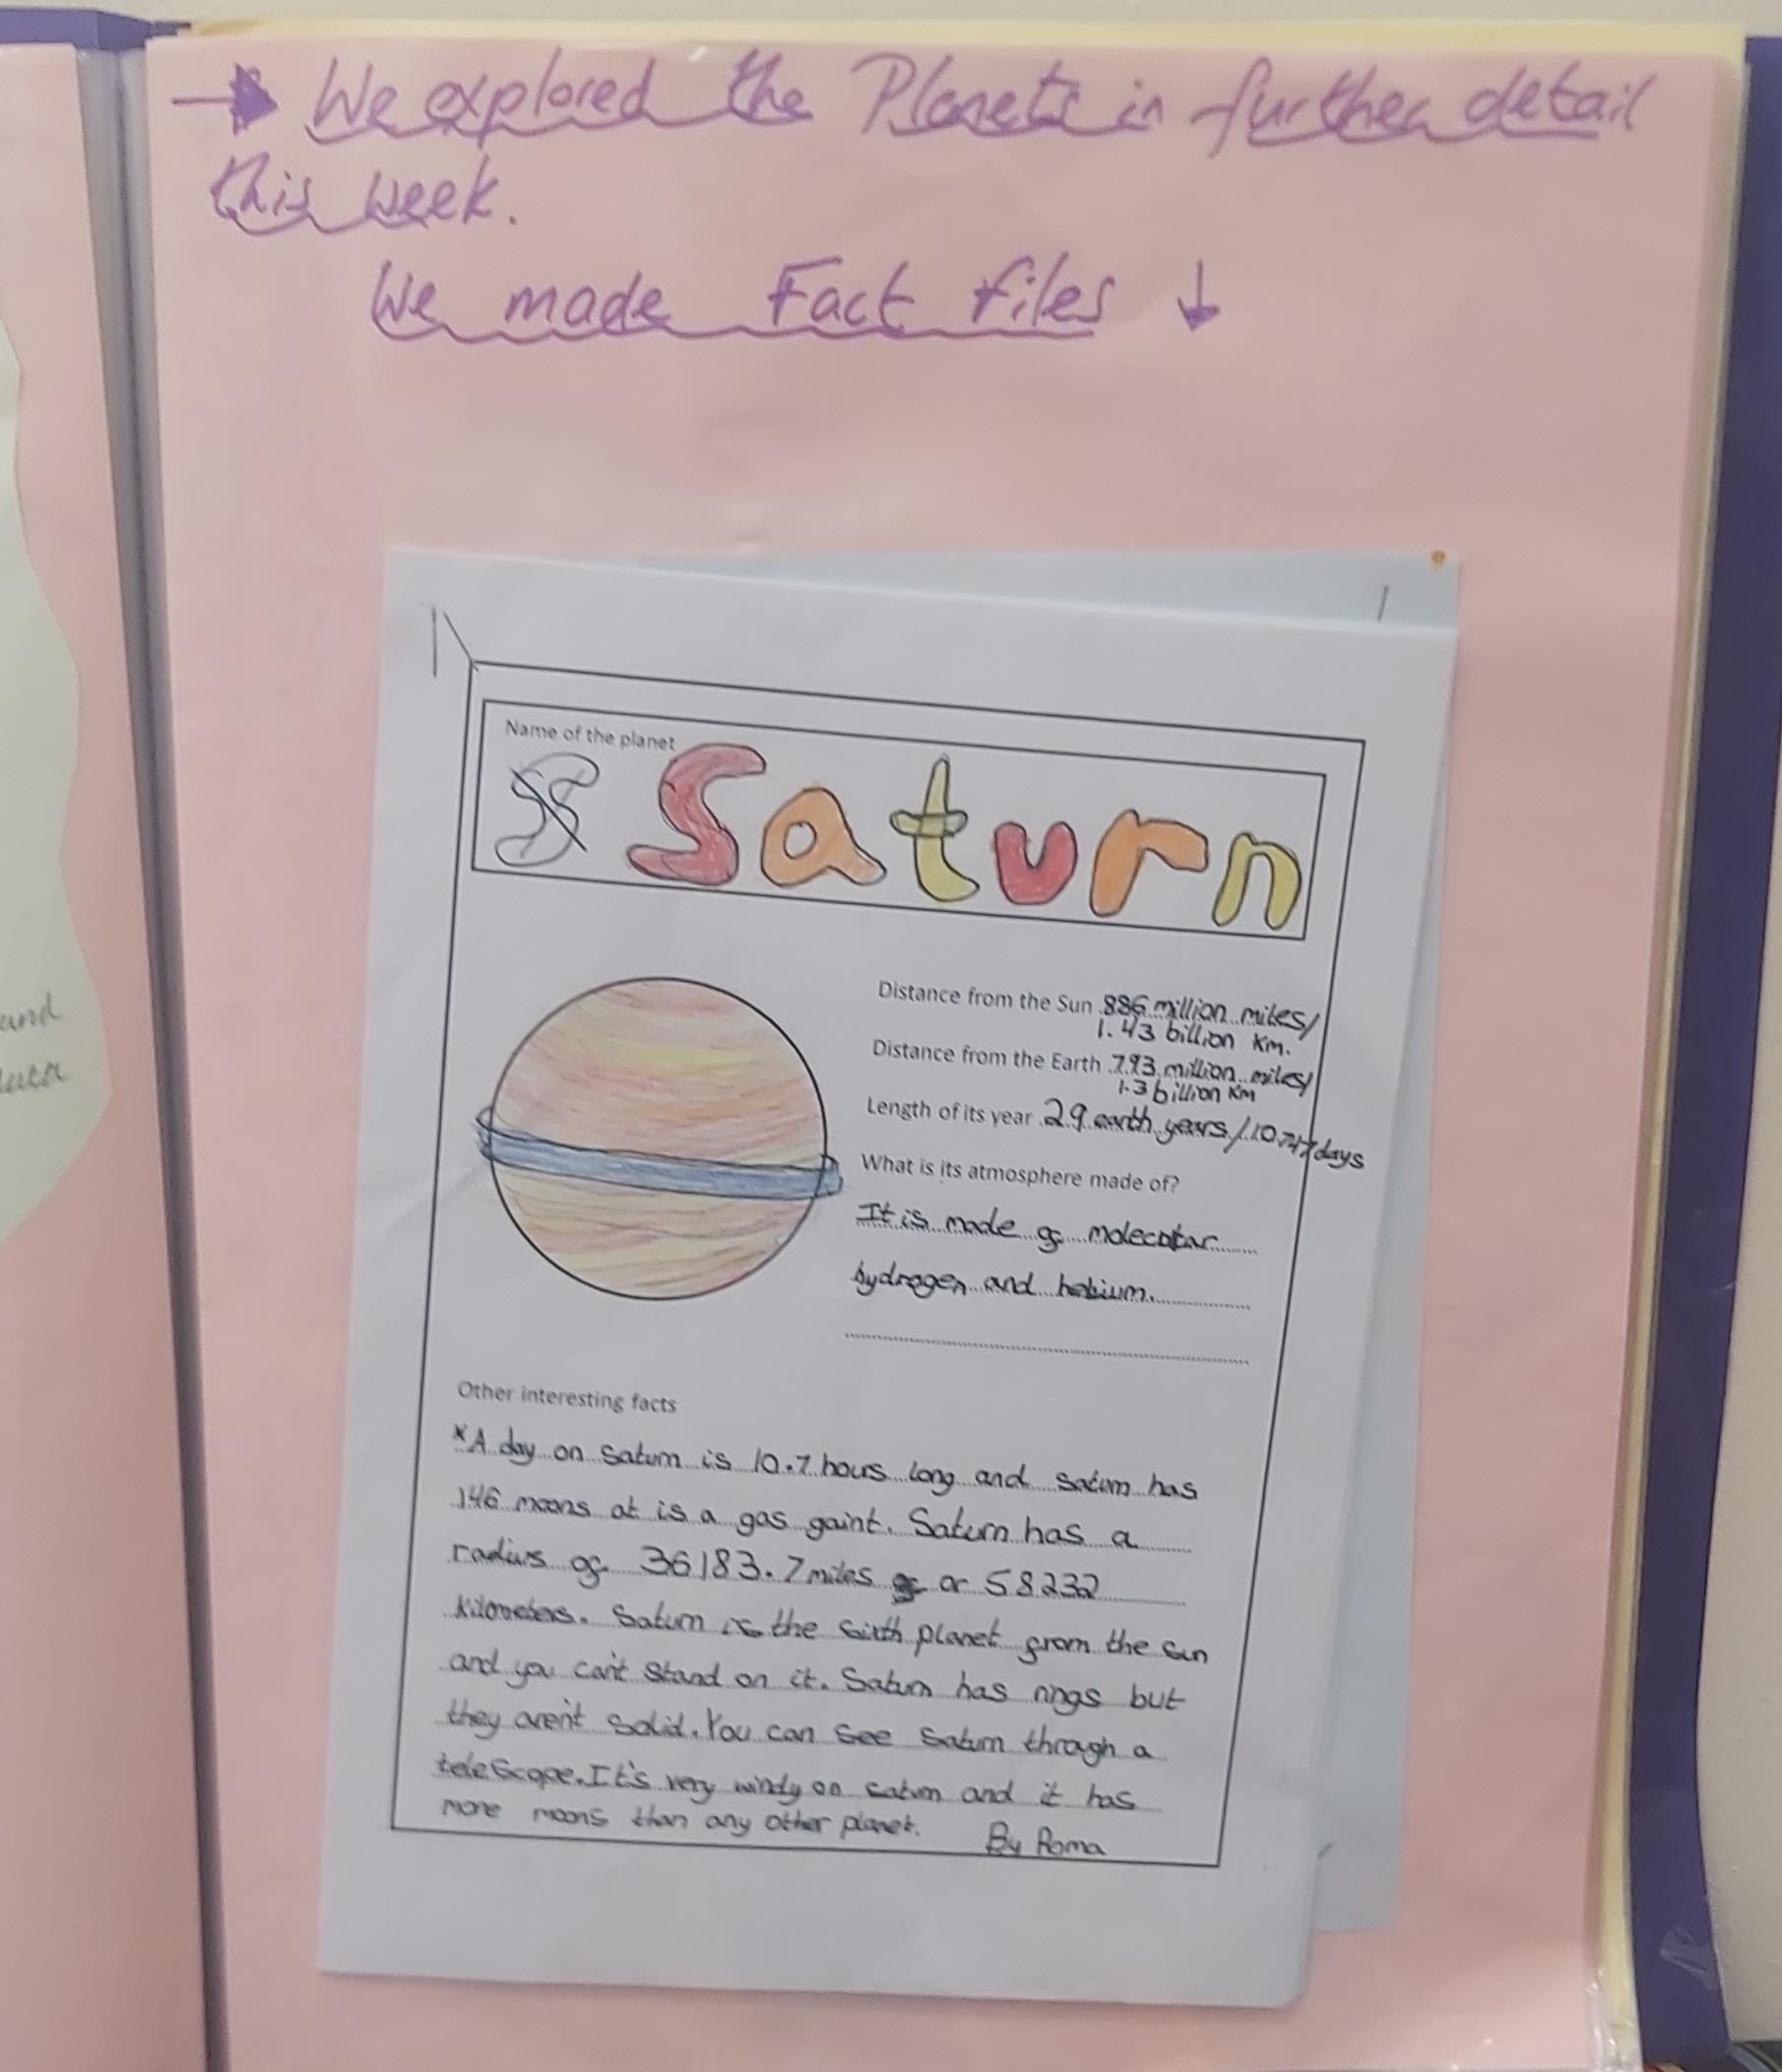 We explored the Planets in further detail
this week.
We made Fact files ↓
Name of the planet
Saturn
Distance from the Sun 886 million miles/
1.43 billion Km.
Distance from the Earth 793 million miles/
1.3 billion Km
Length of its year 29 earth years/10,747 days
What is its atmosphere made of?
It is made of molecular
hydrogen and helium.
Other interesting facts
*A day on Saturn is 10.7 hours long and saturn has
146 moons at is a gas gaint. Saturn has a
radius of 36183.7 miles or 58232
kilometers. Saturn is the sixth planet from the sun
and you can't stand on it. Saturn has rings but
they aren't solid. You can see Saturn through a
telescope. It's very windy on saturn and it has
more moons than any other planet. By Roma
and